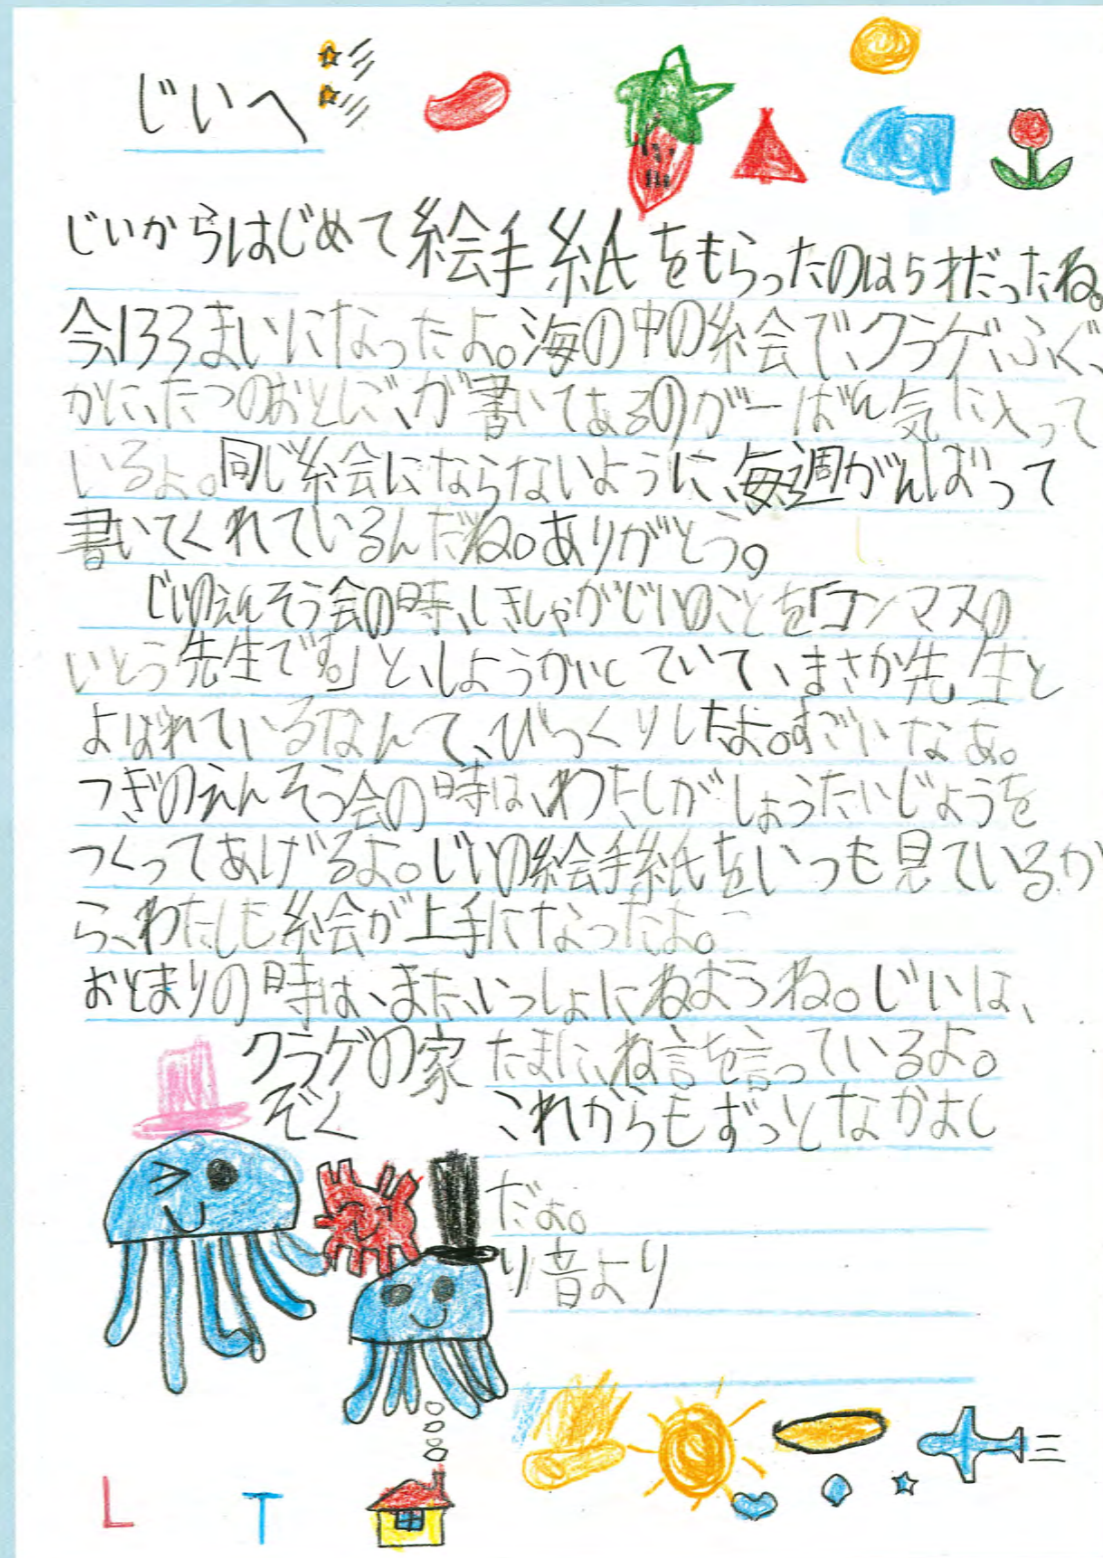 じいへ
じいからはじめて絵手紙をもらったのは5才だったね。
今、133まいになったよ。海の中の絵で、クラゲ、ふぐ、
かに、たつのおとしご、が書いてあるのが一ばん気に入って
いるよ。同じ絵にならないように、毎週がんばって
書いてくれているんだね。ありがとう。
じいのえんそう会の時、しきしゃがじいのことを「コンマスの
いとう先生です。」と、しょうかいしていて、まさか先生と
よばれているなんて、びっくりしたよ。すごいなあ。
つぎのえんそう会の時は、わたしがしょうたいじょうを
つくってあげるよ。じいの絵手紙をいつも見ているか
ら、わたしも絵が上手になったよ。
おとまりの時は、また、いっしょにねようね。じいは、
たまに、ね言を言っているよ。
これからもずっとなかよし
だよ。
り音より
クラゲの家
ぞく
L T